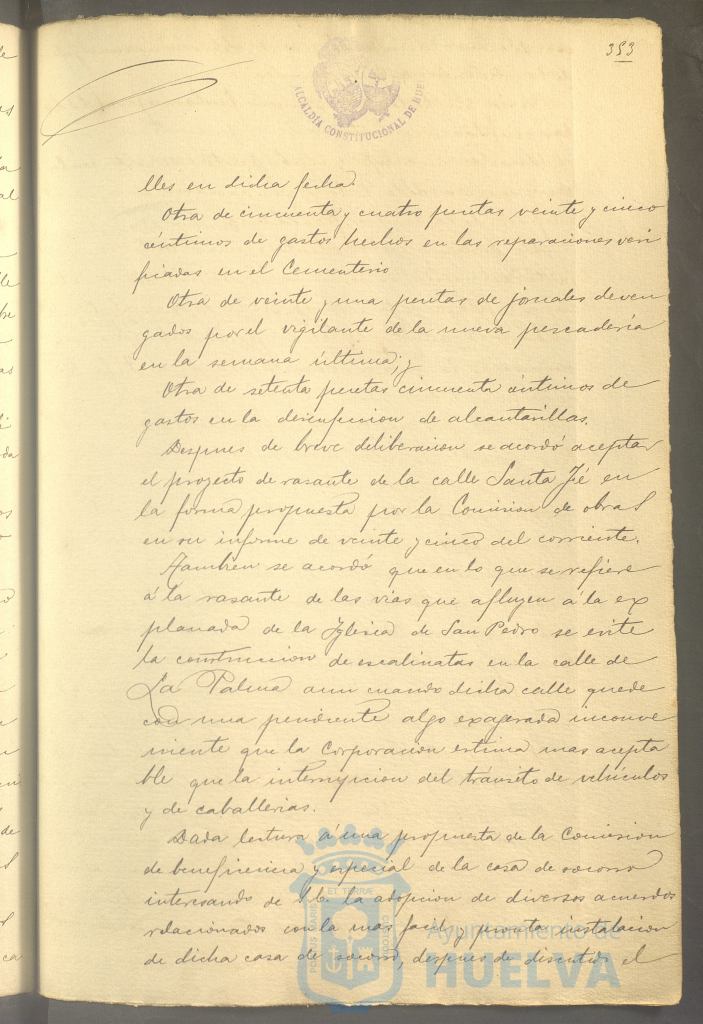 353
ALCALDÍA CONSTITUCIONAL DE HUE
lles en dicha fecha.
Otra de cincuenta y cuatro pesetas veinte y cinco
céntimos de gastos hechos en las reparaciones veri
ficadas en el Cementerio
Otra de veinte y una pesetas de jornales deven
gados por el vigilante de la nueva pescadería
en la semana última; y
Otra de setenta pesetas cincuenta céntimos de
gastos en la desinfeccion de alcantarillas.
Despues de breve deliberacion se acordó aceptar
el proyecto de rasante de la calle Santa Fé en
la forma propuesta por la Comision de obras
en su informe de veinte y cinco del corriente.
Tambien se acordó que en lo que se refiere
á la rasante de las vias que afluyen á la ex
planada de la Iglesia de San Pedro se evite
la construccion de escalinatas en la calle de
La Palma aun cuando dicha calle quede
con una pendiente algo exagerada inconve
niente que la Corporacion estima mas acepta
ble que la interrupcion del tránsito de vehículos
y de caballerias.
Dada lectura á una propuesta de la Comision
de beneficencia y especial de la casa de socorro
interesando de la adopcion de diversos acuerdos
relacionados con la mas facil y pronta instalacion
de dicha casa de socorro, despues de discutido el
PORTUS MARIS ET TERRAE CUSTODIA
Ayuntamiento de
HUELVA